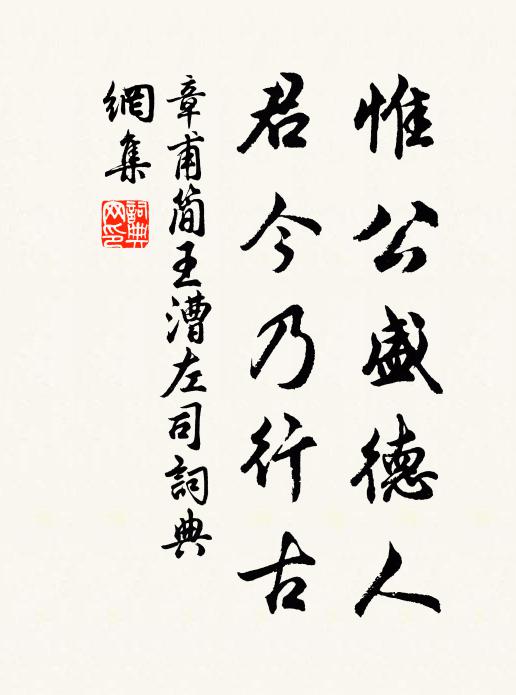 惟公盛德人
君今乃行古
章甫简王漕左司詞典
網集
詞典网印